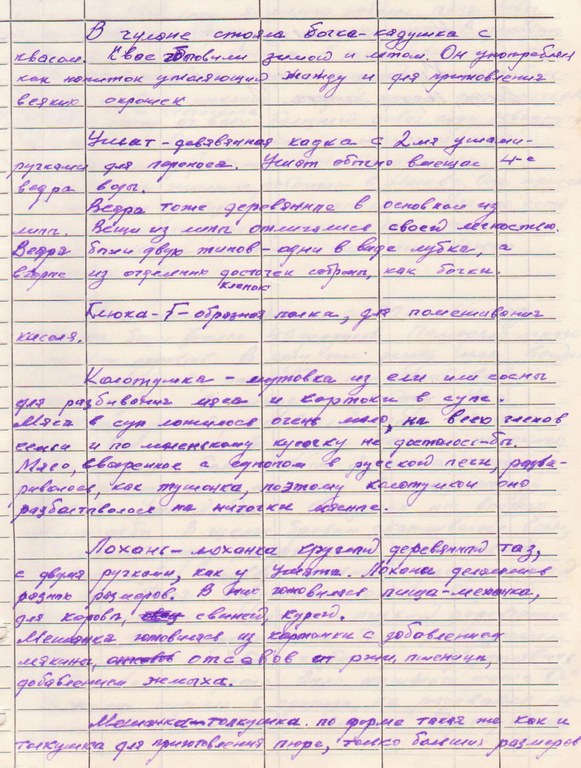 В чулане стояла бочка-кадушка с
квасом. Квас готовили зимой и летом. Он употреблял
как напиток утоляющий жажду и для приготовления
всяких окрошек
Ушат - деревянная кадка с 2мя ушами-
ручками для переноса. Ушат обычно вмещал 4-е
ведра воды.
Ведра тоже деревянные в основном из
липы. Вещи из липы отличались своей легкостью.
Ведра были двух типов - одни в виде лубка, а
вторые из отдельных досточек собраны, как бочки.
клепок
Клюка - Г-образная палка, для помешивания
киселя.
Колотушка - мутовка из ели или сосны
для разбивания мяса и картошки в супе.
Мяса в суп ложилось очень мало, на всех членов
семьи и по маленькому кусочку не досталось-бы.
Мясо, сваренное с супом в русской печи, разва-
ривалось, как тушонка, поэтому колотушкой оно
разбалтывалось на ниточки мясные.
Лохань - лоханка круглый деревянный таз,
с двумя ручками, как у ушата. Лохани делались
разных размеров. В них готовилась пища-мешанка,
для коровы, свиней, курей.
Мешанка готовилась из картошки с добавлением
мякины, отсевов от ржи, пшеницы,
добавлением жмыха.
Мешанка-толкушка. по форме такая же как и
толкушка для приготовления пюре, только больших размеров